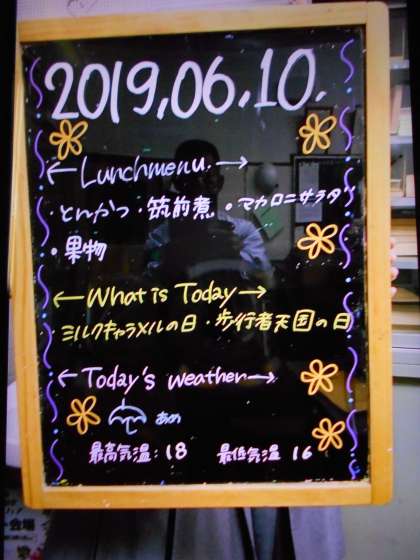 2019.06.10.
← Lunchmenu. →
・とんかつ ・筑前煮 ・マカロニサラダ
・果物
← What is Today →
・ミルクキャラメルの日 ・歩行者天国の日
← Today's weather →
あめ
最高気温:18 最低気温 16
会場